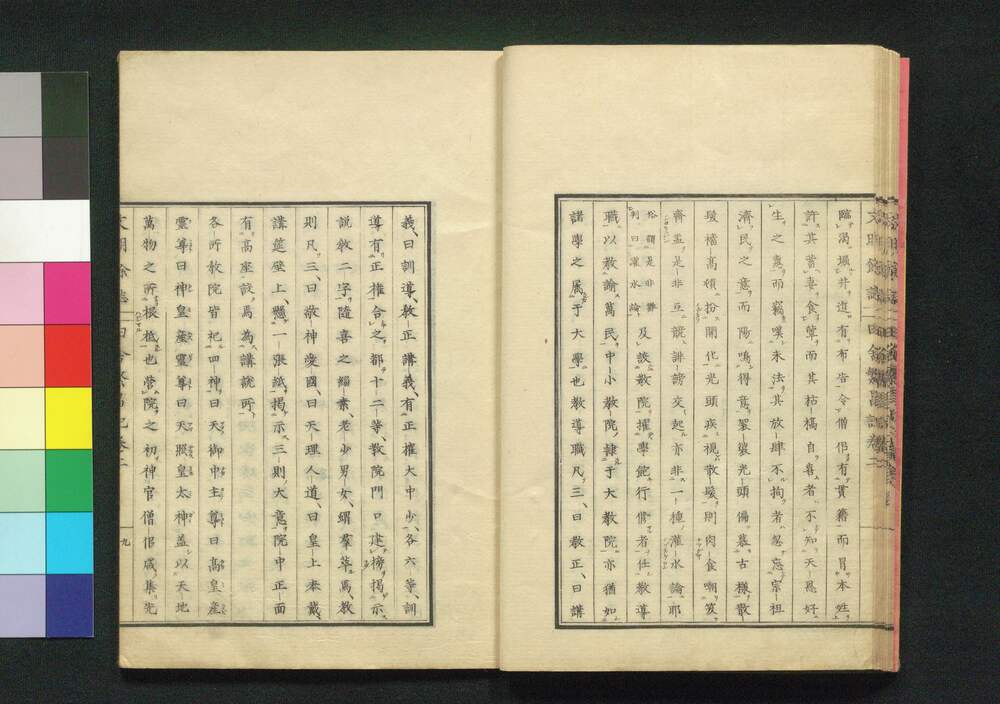 臨渴堀井道有布告令僧侶有實籍而冒本姓
許其蓄妻食葷而其枯槁自喜者不知天恩好
生之意而竊嘆末法其放肆不拘者忽忘宗祖
濟民之意而陽鳴得意袈裟光頭偏慕古樣散
髮檣高頻扮開化光頭疾視散髮則肉食嘲笑
齋盂是非互競誹謗交起亦非一種灌水論耶
俗謂是非辯
判曰灌水論
及設教院擢學飽行脩者任教導
職以教諭萬民中小教院隸于大教院亦猶如
諸學之屬于大學也教導職凡三曰教正曰講
義曰訓導教正講義有正權大中少各六等訓
導有正權合之都十二等教院門口建榜揭示
說教二字隨喜之緇素老少男女蝟羣萃焉教
則凡三曰敬神愛國曰天理人道曰皇上奉戴
講筵壁上懸一張紙揭示三則大意院中正面
有高座設焉為講說所
各所教院皆祀四神曰天御中主尊曰高皇產
靈尊曰神皇產靈尊曰天照皇太神蓋以天地
萬物之所根柢也營院之初神官僧侶咸集先